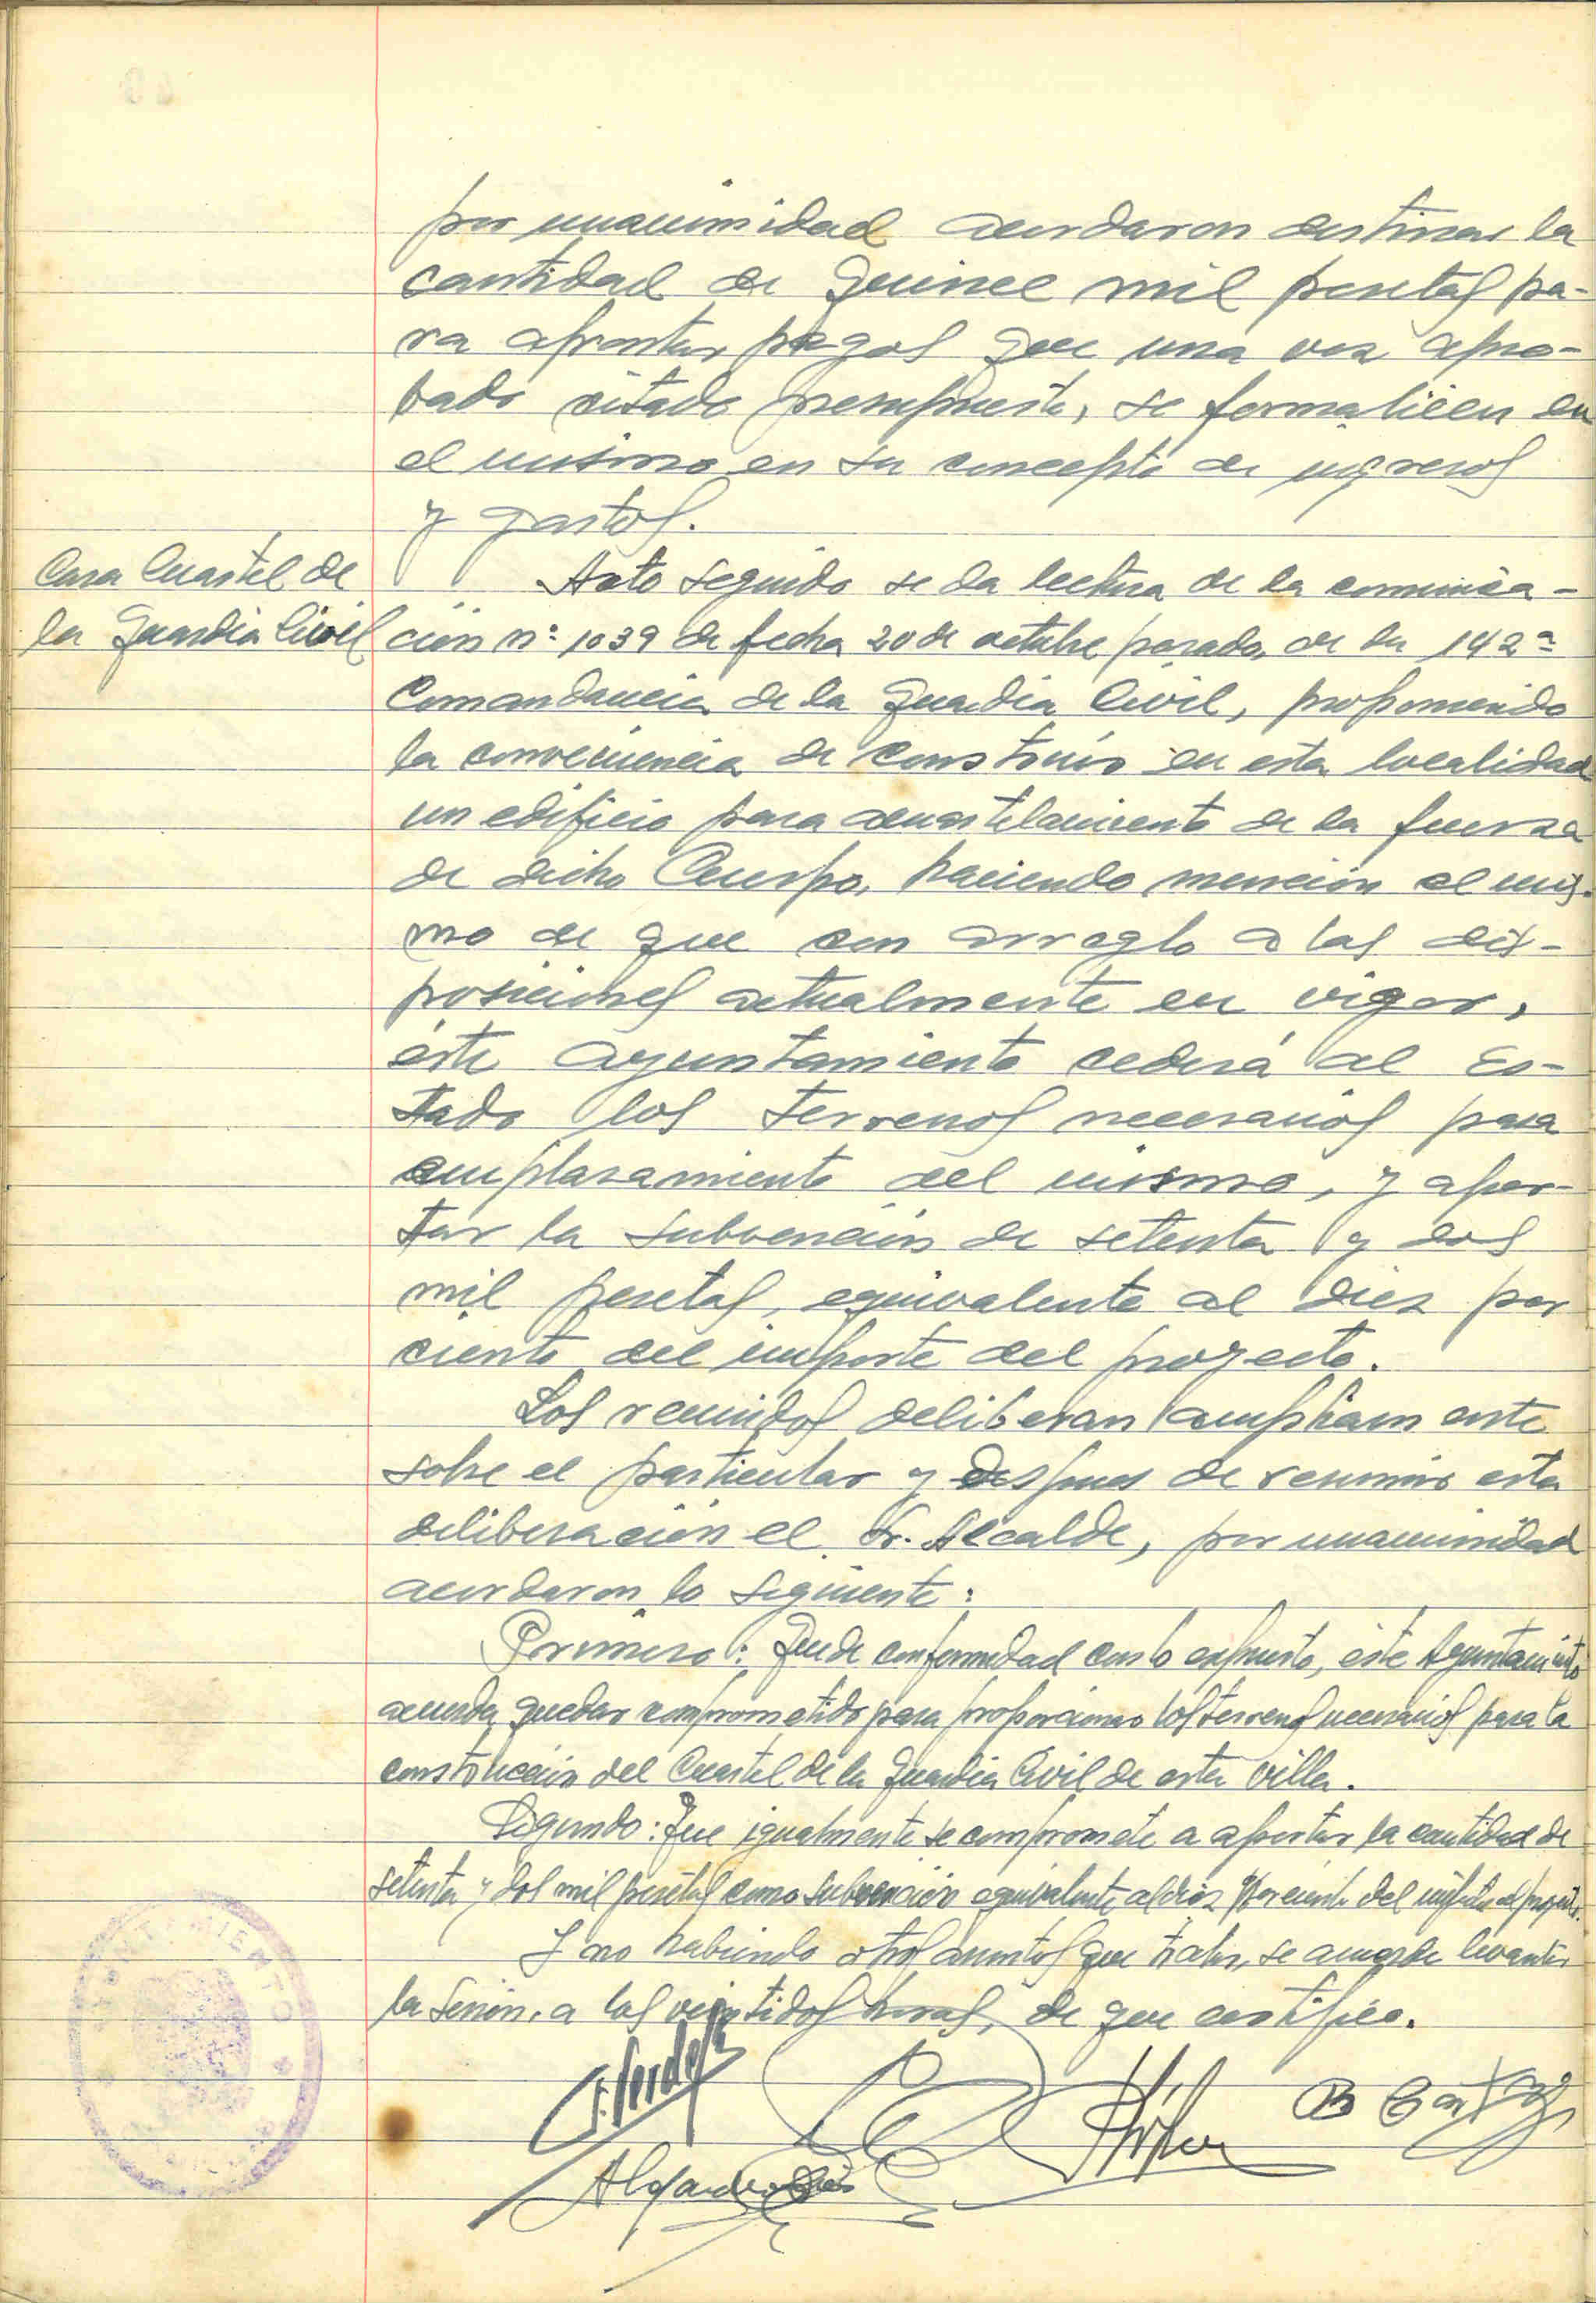 por unanimidad acordaron destinar la
cantidad de Quince mil pesetas pa-
ra afrontar pagos que una vez apro-
bado citado presupuesto, se formalicen en
el mismo en su concepto de ingresos
y gastos.
Casa Cuartel de
la Guardia Civil
Acto seguido se da lectura de la comunica-
ción nº 1039 de fecha 20 de octubre pasado, de la 142ª
Comandancia de la Guardia Civil, proponiendo
la conveniencia de construir en esta localidad
un edificio para acuartelamiento de la fuerza
de dicho Cuerpo, haciendo mención al mis-
mo de que con arreglo a las dis-
posiciones actualmente en vigor,
éste Ayuntamiento cederá al Es-
tado los terrenos necesarios para
emplazamiento del mismo, y apor-
tar la subvención de setenta y dos
mil pesetas, equivalente al diez por
ciento del importe del proyecto.
Los reunidos deliberan ampliamente
sobre el particular y despues de resumir esta
deliberación el Sr. Alcalde, por unanimidad
acordaron lo siguiente:
Primero: Que de conformidad con lo expuesto, éste Ayuntamiento
acuerda quedar comprometido para proporcionar los terrenos necesarios para la
construcción del Cuartel de la Guardia Civil de esta villa.
Segundo: Que igualmente se compromete a aportar la cantidad de
setenta y dos mil pesetas como subvención equivalente al diez por ciento del importe del proyecto.
Y no habiendo otros asuntos que tratar, se acuerda levantar
la sesión, a las veintidos horas, de que certifico.
Alejandro